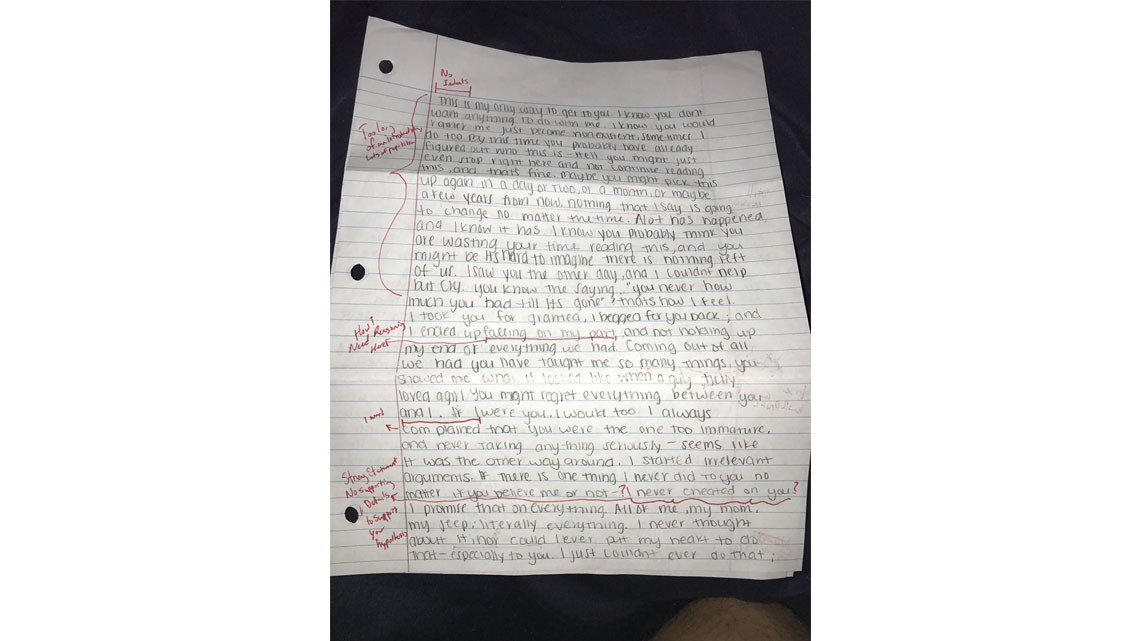 No
Indents
This is my only way to get to you I know you don't
want anything to do with me. I know you would
rather me just become nonexistent, sometimes I
do too by this time you probably have already
figured out who this is - Hell you might just
even stop right here and not continue reading
this, and thats fine. Maybe you might pick this
up again in a day or two, or a month, or maybe
a few years from now. nothing that I say is going
to change no matter the time. Alot has happened,
and I know it has I know you probably think you
are wasting your time reading this, and you
might be its hard to imagine there is nothing left
of us. I saw you the other day, and I couldnt help
but cry. you know the saying, "you never how
much you had till its gone" thats how I feel.
I took you for granted, I begged for you back, and
I ended up falling on my part, and not holding up
my end of everything we had. Coming out of all
we had you have taught me so many things, you
showed me what it looked like when a guy, truly
loved a girl you might regret everything between you
and I. If I were you, I would too. I always
complained that you were the one too immature,
and never taking anything seriously - seems like
it was the other way around. I started irrelevant
arguments. If there is one thing I never did to you no
matter if you believe me or not -? I never cheated on you?
I promise that on everything. All of me, my mom,
my jeep, literally everything. I never thought
about it, nor could I ever put my heart to do
that - especially to you. I just couldnt ever do that;
Too long
of an introduction,
Lots of repetition
How?
Need Reasoning
Here!
1 word
Strong Statement
No supporting
Details
to support
your
hypothesis